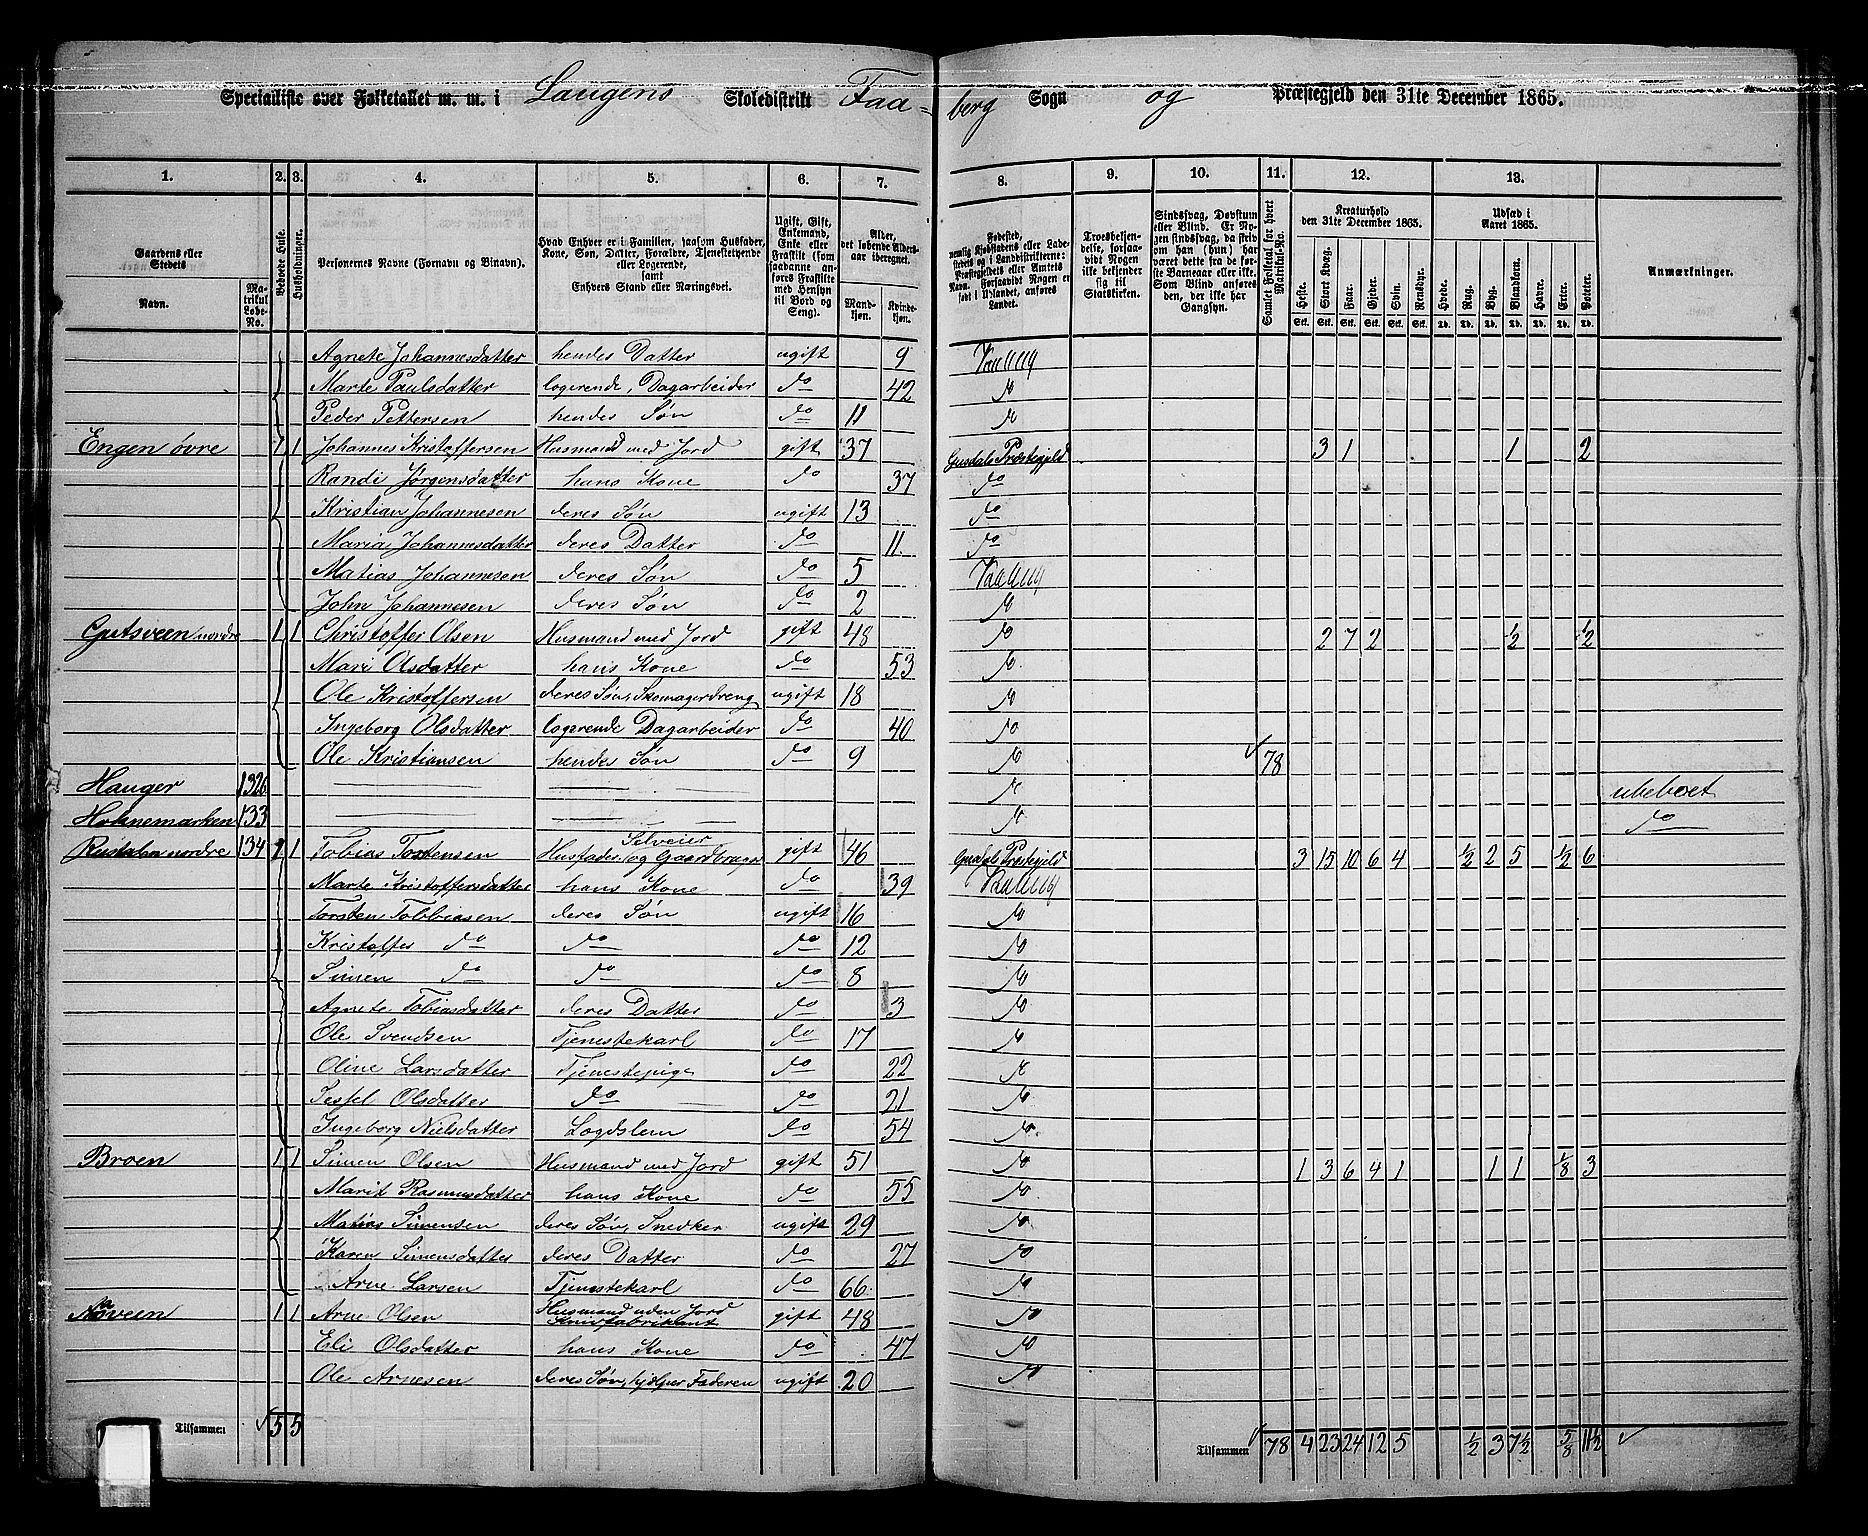 Specialliste over Folketallet m. m. i Laugens Skoledistrikt Faa- berg Sogn og Præstegjeld den 31te December 1865.
1. 2. 3. 4. 5. 6. 7. 8. 9. 10. 11. 12. 13.
Gaardens eller Stedets
Navn.
Matrikul Løbe-No.
Beboede Huse.
Husholdninger.
Personernes Navne (Fornavn og Binavn).
Hvad Enhver er i Familien, saasom Husfader, Kone, Søn, Datter, Forældre, Tjenestetyende eller Logerende, samt
Enhvers Stand eller Næringsvei.
Ugift, Gift, Enkemand, Enke eller Fraskilt (som saadanne anføres Fraskilte med Hensyn til Bord og Seng).
Alder, det løbende Aldersaar iberegnet.
Mandkjøn.
Kvindekjøn.
Fødested, nemlig Kjøbstadens eller Ladestedets og i Landdistrikterne: Præstegjeldets eller Amtets Navn. Forsaavidt Nogen er født i Udlandet, anføres Landet.
Troesbekjendelse, forsaavidt Nogen ikke bekjender sig til Statskirken.
Sindssvag, Døvstum eller Blind. Er Nogen sindssvag, da skriv om han (hun) har været dette fra de første Barneaar eller ikke. Som Blind anføres den, der ikke har Gangsyn.
Samlet Folketal for hvert Matrikul-No.
Kreaturhold den 31te December 1865.
Heste. Stort Kvæg. Faar. Gjeder. Svin. Rensdyr.
Udsæd i Aaret 1865.
Hvede. Rug. Byg. Blandkorn. Havre. Erter. Poteter.
Anmærkninger.
Stk. Stk. Stk. Stk. Stk. Stk. Td. Td. Td. Td. Td. Td. Td.
Agnete Johannesdatter hendes Datter ugift 9
Marte Paulsdatter logerende, Dagarbeider do 42 do
Peder Pettersen hendes Søn do 11 do
Engen øvre 1 1 Johannes Kristoffersen Husmand med Jord gift 37 Gusdals Præstegjeld 3 1 1 2
Randi Jørgensdatter hans Kone do 37 do
Kristian Johannesen deres Søn ugift 13 do
Maria Johannesdatter deres Datter do 11. do
Matias Johannesen deres Søn do 5
John Johannesen deres Søn do 2 do
Gutsveen nordre 1 1 Christoffer Olsen Husmand med Jord gift 48 do 2 7 2 ½ ½
Mari Olsdatter hans Kone do 53 do
Ole Kristoffersen deres Søn, Skomagerdreng ugift 18 do
Ingeborg Olsdatter logerende Dagarbeider do 40 do
Ole Kristiansen hendes Søn do 9 do 78
Hauger do ubeboet
133 do do
nordre 134 1 1 Tobias Torstensen Husfader, Selveier og Gaardbruger gift 46 Gusdals Præstegjeld 3 15 10 6 4 ½ 2 5 ½ 6
Marte Kristoffersdatter hans Kone do 39
Torsten Tobbiasen deres Søn ugift 16 do
Kristoffer do do do 12 do
Simen do do do 8 do
Agnete Tobiasdatter deres Datter do 3 do
Ole Svendsen Tjenestekarl do 17 do
Oline Larsdatter Tjenestepige do 22 do
Sessel Olsdatter do do 21 do
Ingeborg Nielsdatter Logdslem do 54 do
Broen 1 1 Simen Olsen Husmand med Jord gift 51 do 1 3 6 4 1 1 1 ⅛ 3
Marit Rasmusdatter hans Kone do 55 do
Matias Simensen deres Søn, Snedker ugift 29 do
Karen Simensdatter deres Datter do 27 do
Arne Larsen Tjenestekarl do 66 do
1 1 Arne Olsen Husmand uden Jord Knivfabrikant gift 48 do
Eli Olsdatter hans Kone do 47 do
Ole Arnesen deres Søn, hjelper Faderen ugift 20 do
Tilsammen 5 5
Tilsammen 78 4 23 24 12 5 ½ 3 7½ ⅝ 11½